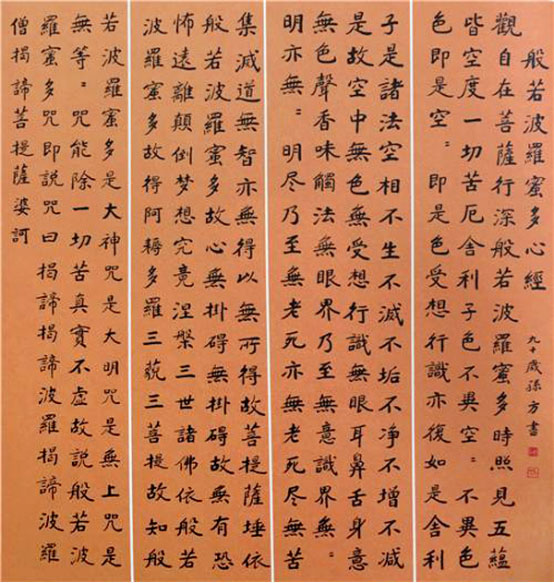 般若波羅蜜多心經
九十歲孫方書
觀自在菩薩行深般若波羅蜜多時照見五蘊
皆空度一切苦厄舍利子色不異空〻不異色
色即是空〻即是色受想行識亦復如是舍利
子是諸法空相不生不滅不垢不净不增不减
是故空中無色無受想行識無眼耳鼻舌身意
無色聲香味觸法無眼界乃至無意識界無〻
明亦無〻明尽乃至無老死亦無老死尽無苦
集滅道無智亦無得以無所得故菩提薩埵依
般若波羅蜜多故心無掛碍無掛碍故無有恐
怖遠離顛倒梦想究竟涅槃三世諸佛依般若
波羅蜜多故得阿耨多羅三藐三菩提故知般
若波羅蜜多是大神咒是大明咒是無上咒是
無等〻咒能除一切苦真實不虛故説般若波
羅蜜多咒即説咒曰揭諦揭諦波羅揭諦波羅
僧揭諦菩提薩婆訶